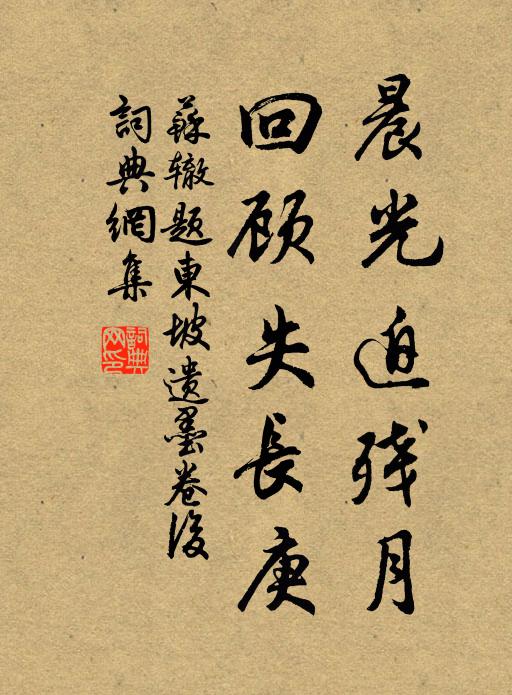 晨光迫残月
回顾失長庚
蘇辙题東坡遺墨卷後
詞典網集
詞典网印